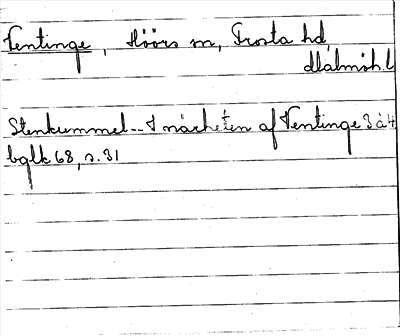 Ventinge, Höörs sn, Frosta hd,
Malmöh. l
Stenkummel -- I närheten af Ventinge 3 à 4
bglk 68, s. 31